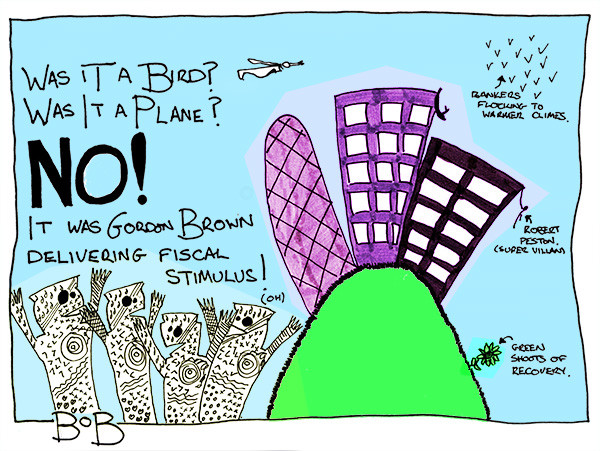 WAS IT A BIRD?
WAS IT A PLANE?
NO!
IT WAS GORDON BROWN
DELIVERING FISCAL
STIMULUS!
(OH)
BANKERS
FLOCKING TO
WARMER CLIMES.
ROBERT
PESTON.
(SUPER VILLAN)
GREEN
SHOOTS OF
RECOVERY.
BOB